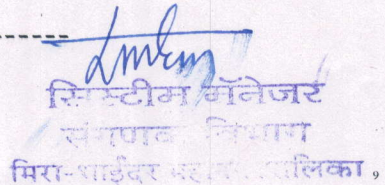 सिस्टीम मॅनेजर
संगणक विभाग
मिरा-भाईंदर महानगरपालिका,